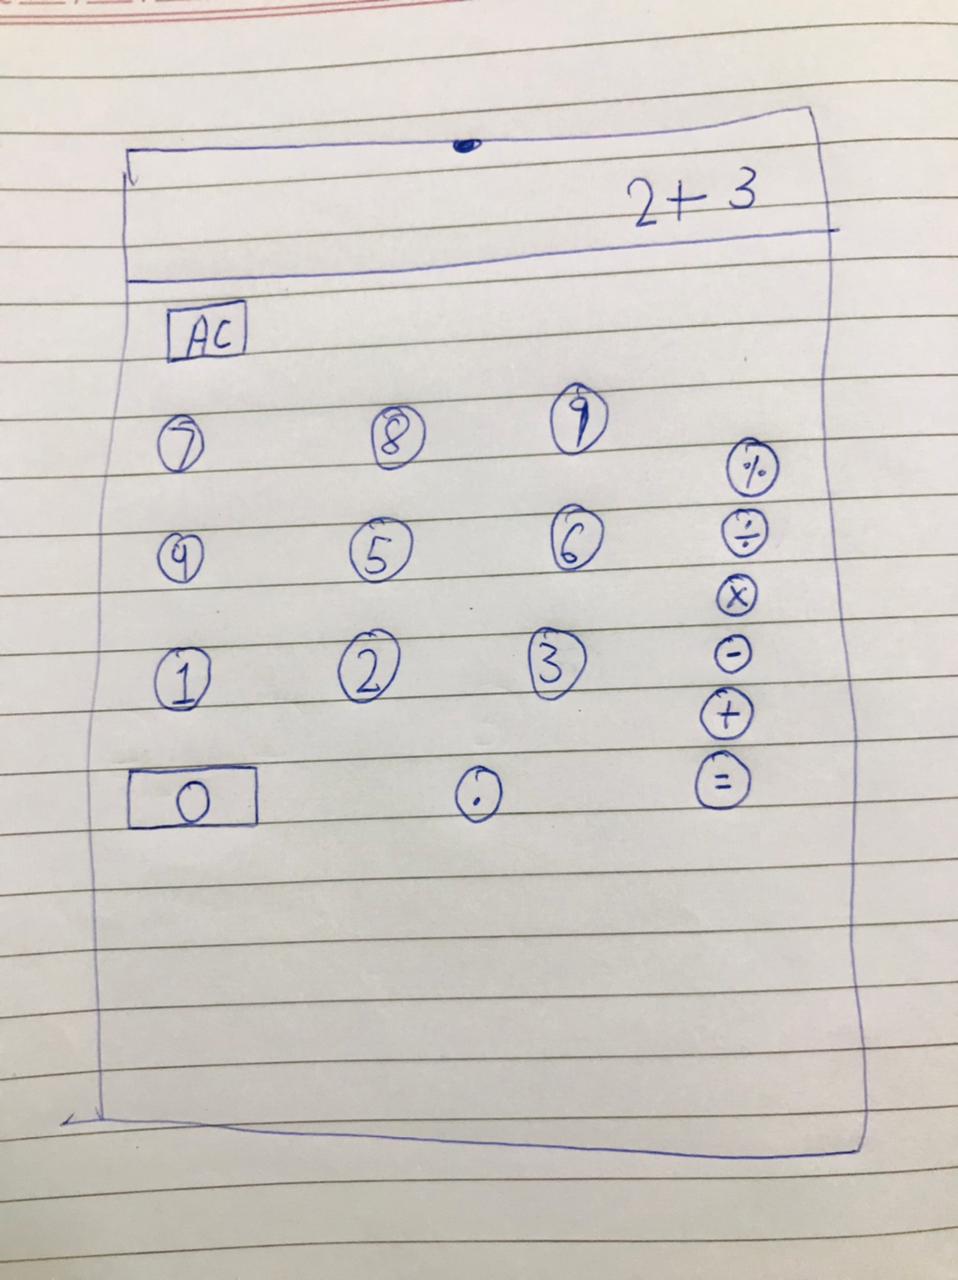 2+3
AC
7 8 9
%
4 5 6
÷
×
-
1 2 3
+
0 . =